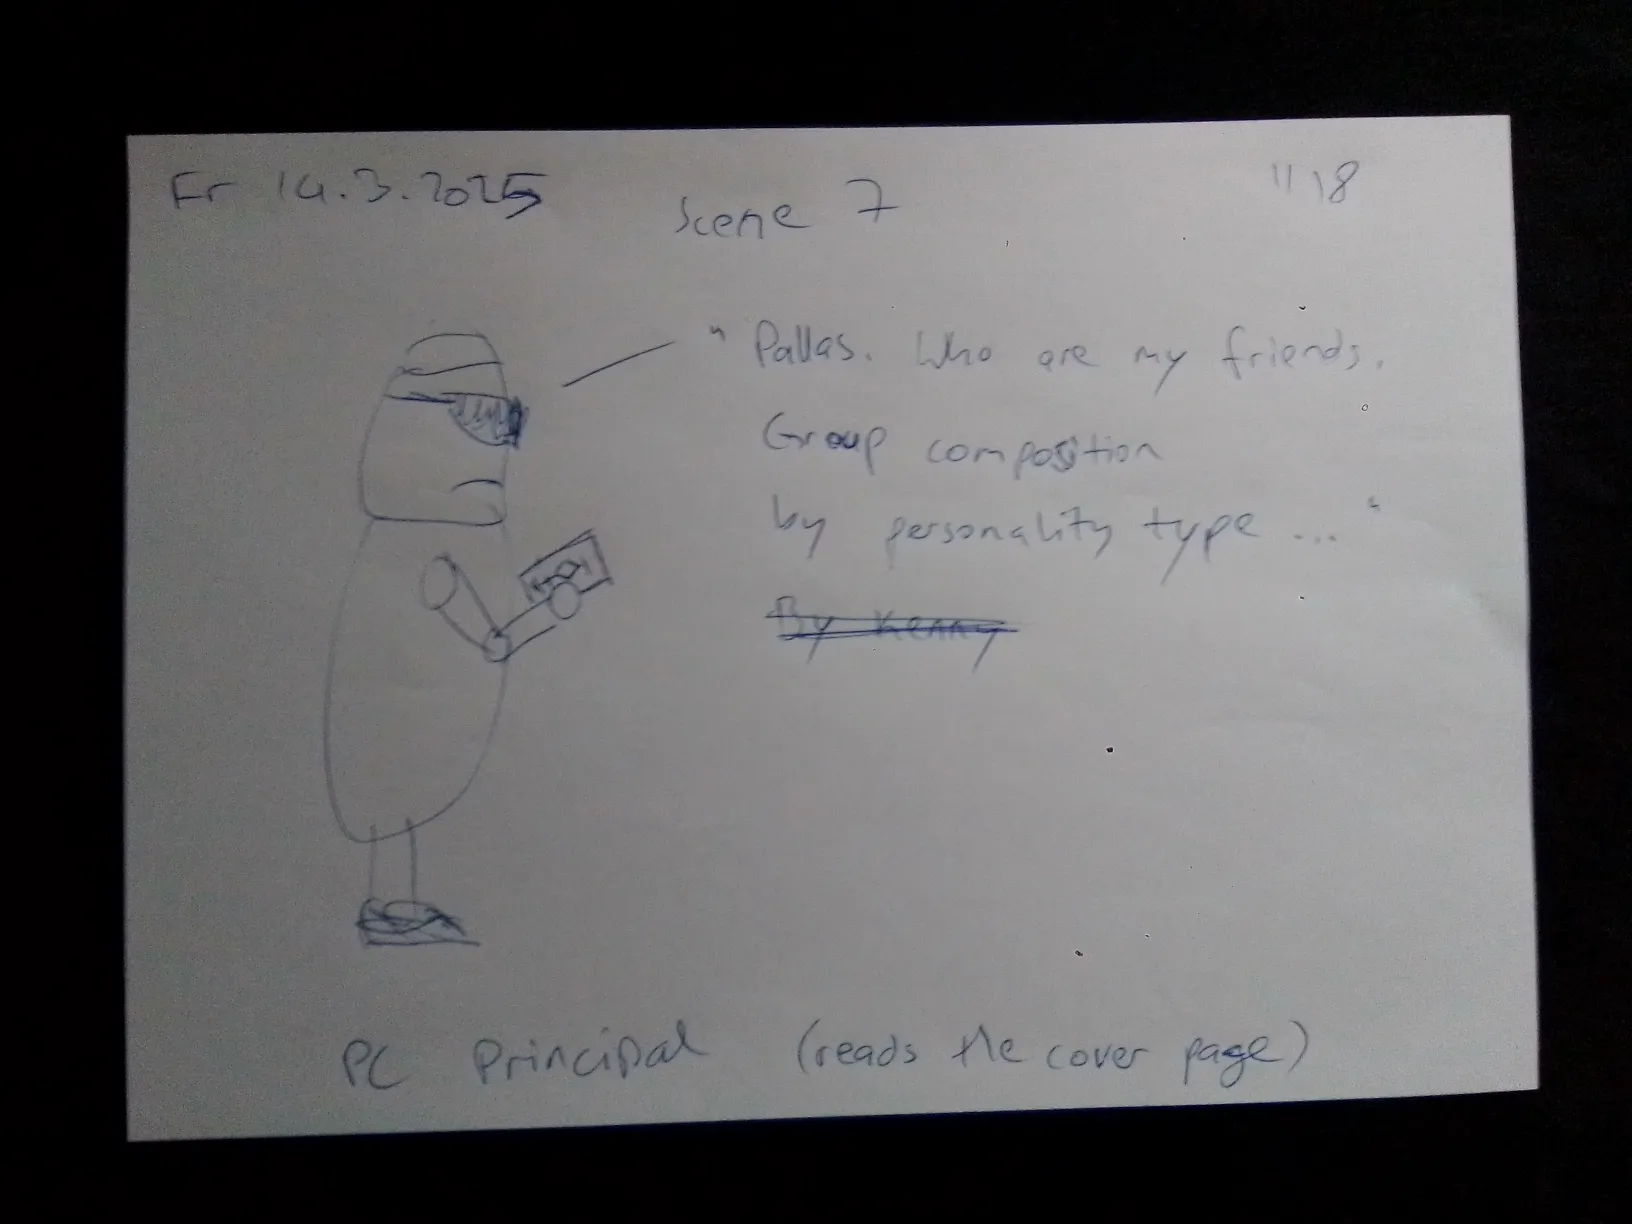 Fr 14.3.2025
Scene 7
" 18
" Pallas. Who are my friends.
Group composition
by personality type ... "
By Kenny
PC Principal (reads the cover page)